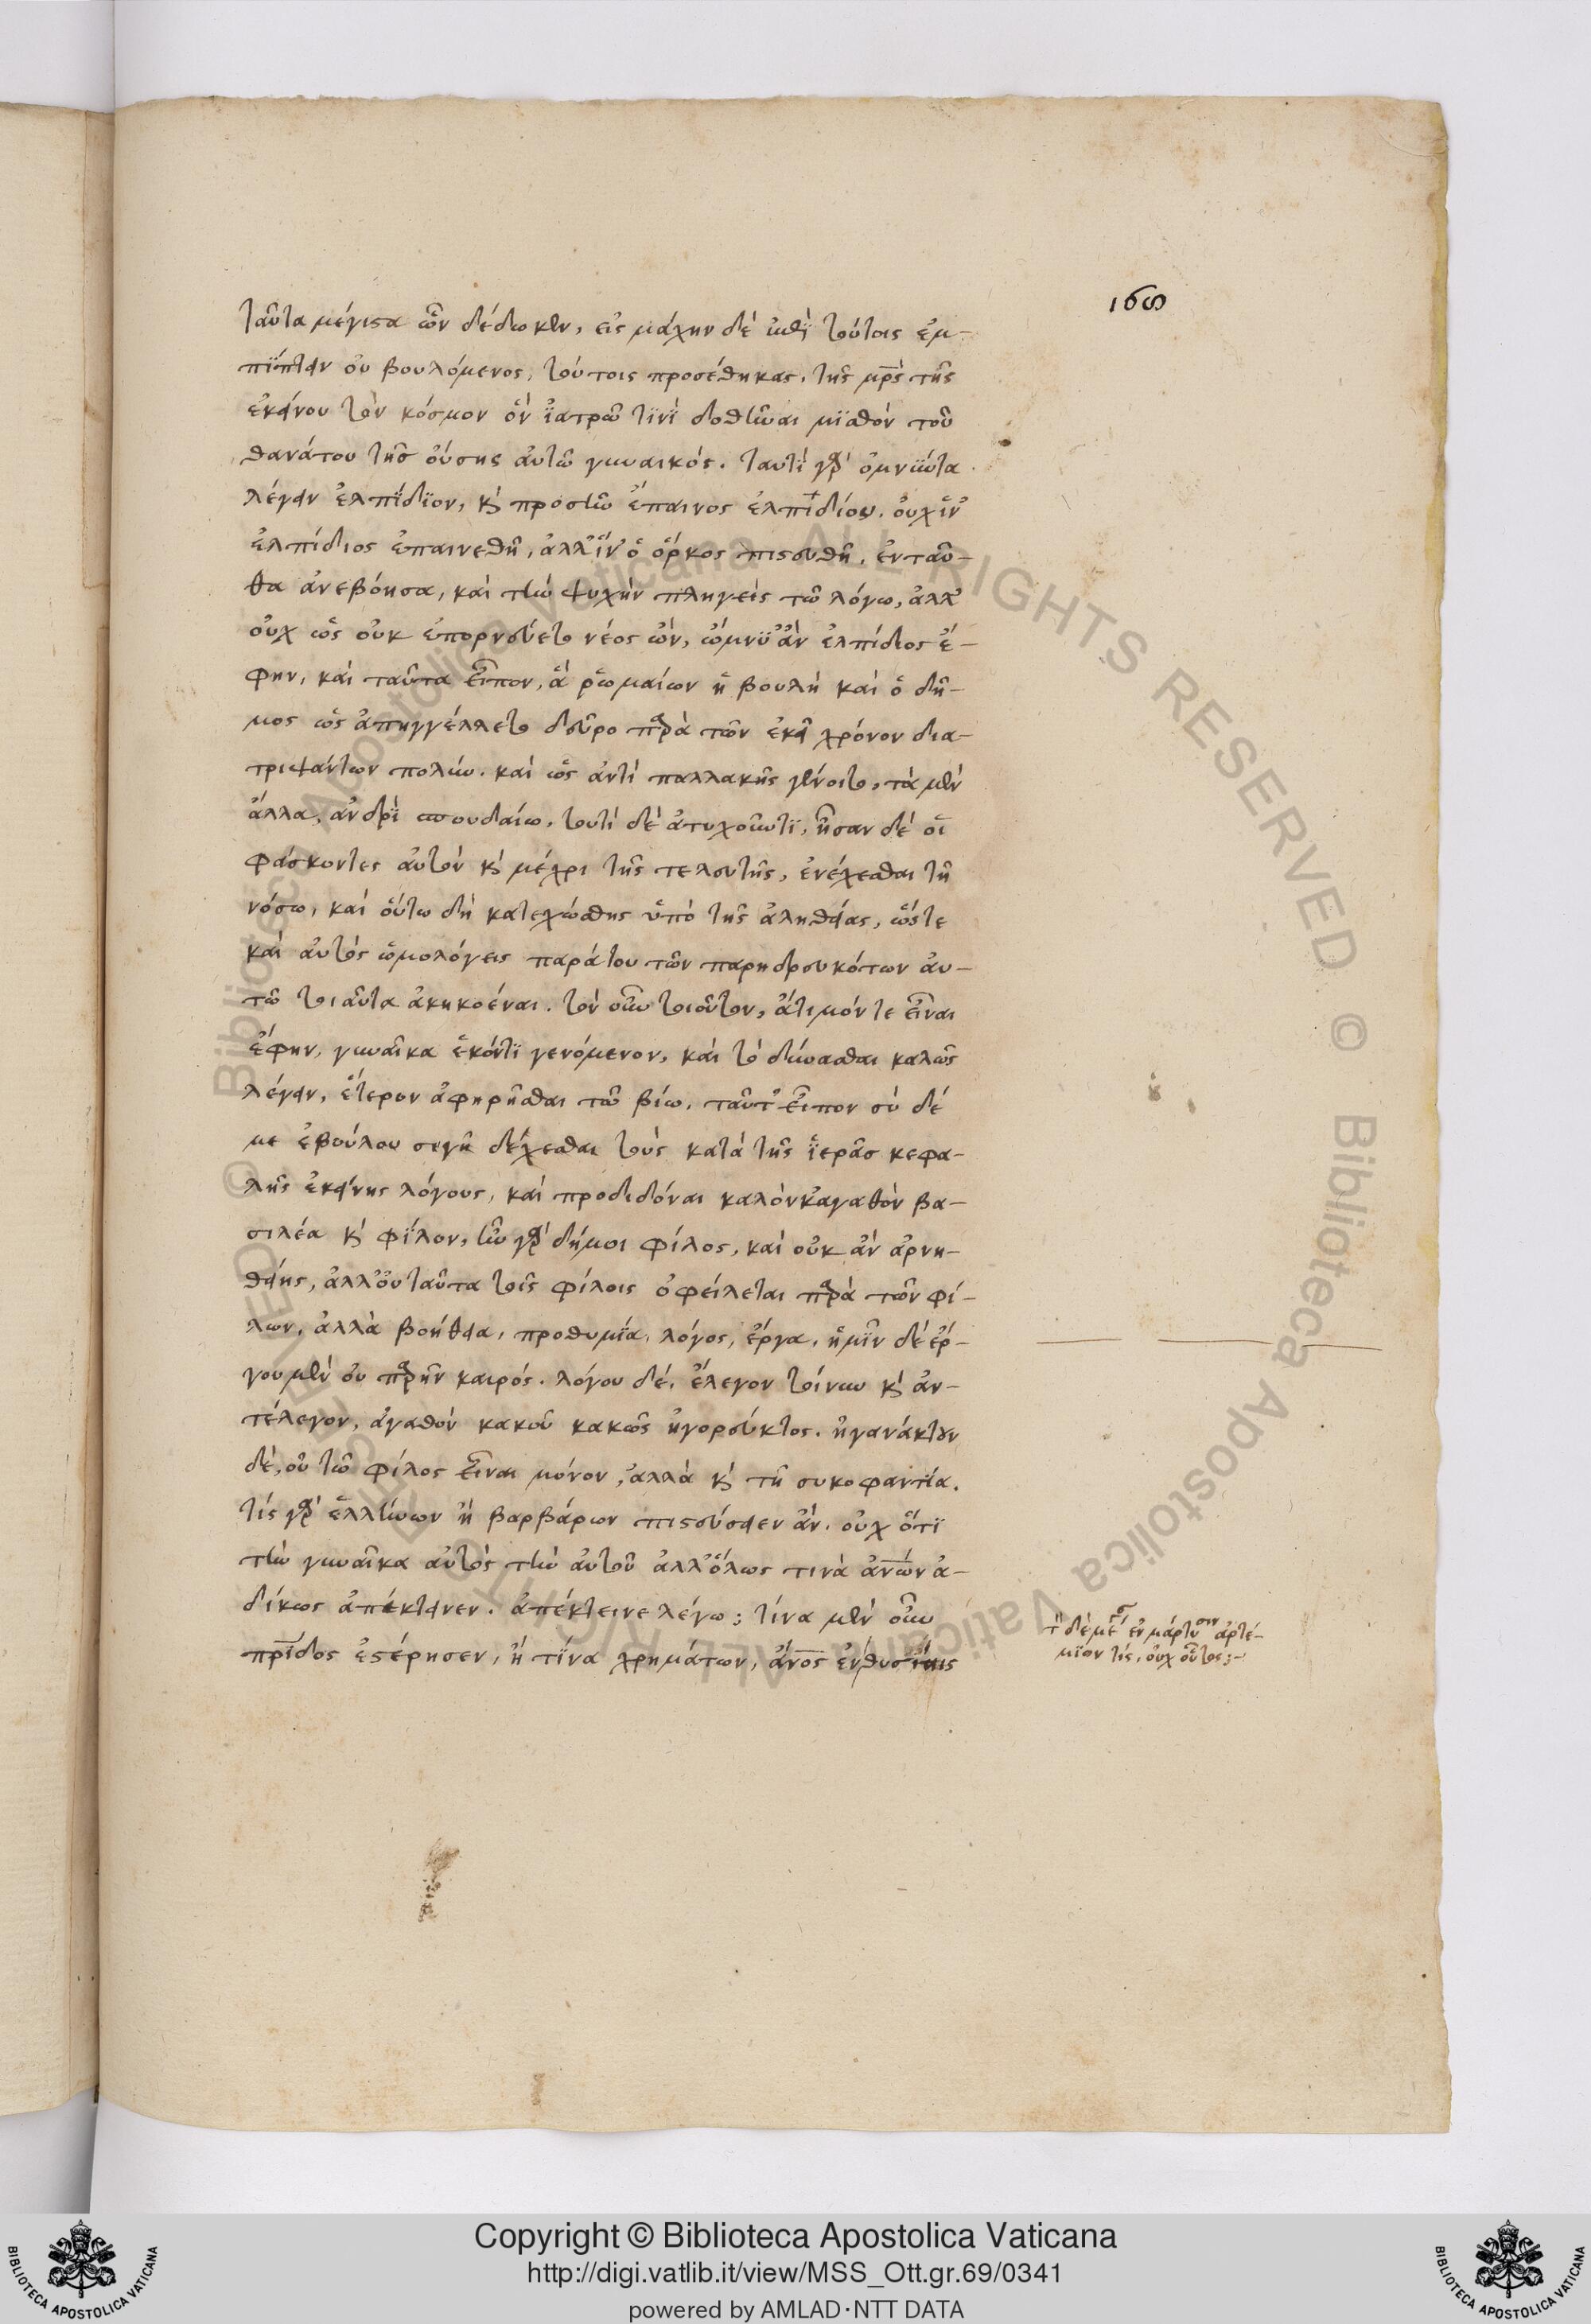 168
ταῦτα μέγιστα ὧν δέδωκεν, εἰς μάχην δὲ ἐπὶ τούτοις ἐμ-
πίπτειν οὐ βουλόμενος, τούτοις προσέθηκας. τῆς μρ̅ς τῆς
ἐκείνου τὸν κόσμον ὃν ἰατρῶ τινὶ δοθῆναι μισθὸν τοῦ
θανάτου τῆς οὔσης αὐτῶ γυναικός. ταυτὶ γὰρ ὀμνύντα
λέγειν ἐλπίδιον, κ προστῶ ἔπαινος ἐλπιδίου. οὐχ ἵν
ἐλπίδιος ἐπαινεθῆ, ἀλλ' ἵν' ὁ ὅρκος πιστευθῆ, ἐνταῦ-
θα ἀνεβόησα, καὶ τὴν ψυχὴν πληγεὶς τῶ λόγω, ἀλλ'
οὐχ ὡς οὐκ ἐπορνεύετο νέος ὢν, ὤμνυ ἂν ἐλπίδιος ἔ-
φην, καὶ ταῦτα εἶπον, ἃ ῥωμαίων ἡ βουλὴ καὶ ὁ δῆ-
μος ὡς ἀπηγγέλλετο δεῦρο παρὰ τῶν ἐκεῖ χρόνον δια-
τριψάντων πολὺν. καὶ ὡς ἀντὶ παλλακῆς γένοιτο, τὰ μὲν
ἄλλα, ἀνδρὶ σπουδαίω, τουτὶ δὲ ἀτυχοῦντι, ἦσαν δὲ οἳ
φάσκοντες αὐτὸν κ μέχρι τῆς τελευτῆς, ἐνέχεσθαι τῆ
νόσω, καὶ οὕτω δὴ κατεχώσθης ὑπὸ τῆς ἀληθείας, ὥστε
καὶ αὐτὸς ὡμολόγεις παρά του τῶν παρηδρευκότων αὐ-
τῶ τοιαῦτα ἀκηκοέναι. τὸν οὖν τοιοῦτον, ἄτιμόν τε εἶναι
ἔφην, γυναῖκα ἑκόντι γενόμενον, καὶ τὸ δύνασθαι καλῶς
λέγειν, ἕτερον ἀφηρῆσθαι τῶ βίω. ταῦτ' εἶπον σὺ δέ
με ἐβούλου σιγῆ δέχεσθαι τοὺς κατὰ τῆς ἱερᾶς κεφα-
λῆς ἐκείνης λόγους, καὶ προδιδόναι καλὸν κἀγαθὸν βα-
σιλέα κ φίλον, ἦν γὰρ δήμοι φίλος, καὶ οὐκ ἂν ἀρνη-
θείης, ἀλλ' οὐ ταῦτα τοῖς φίλοις ὀφείλεται παρὰ τῶν φί-
λων, ἀλλὰ βοήθεια, προθυμία, λόγος, ἔργα, ἡμῖν δὲ ἔρ-
γου μὲν οὐ παρῆν καιρός. λόγου δέ, ἔλεγον τοίνυν κ ἀν-
τέλεγον, ἀγαθὸν κακοῦ κακῶς ἠγορευκότος. ἠγανάκτουν
δέ, οὐ τῶ φίλος εἶναι μόνον, ἀλλὰ κ τῆ συκοφαντία.
τίς γὰρ ἑλλήνων ἢ βαρβάρων πιστεύσειεν ἄν. οὐχ ὅτι
τὴν γυναῖκα αὐτὸς τὴν αὐτοῦ ἀλλ' ὅλως τινὰ ἀν̅ων ἀ-
δίκως ἀπέκτεινεν. ἀπέκτεινε λέγω; τίνα μὲν οὖν
πρ̅ίδος ἐστέρησεν, ἢ τίνα χρημάτων, ἄν̅ος
ἀρτέ-
μιον τίς, οὐχ οὗτος;
Copyright © Biblioteca Apostolica Vaticana
http://digi.vatlib.it/view/MSS_Ott.gr.69/0341
powered by AMLAD·NTT DATA